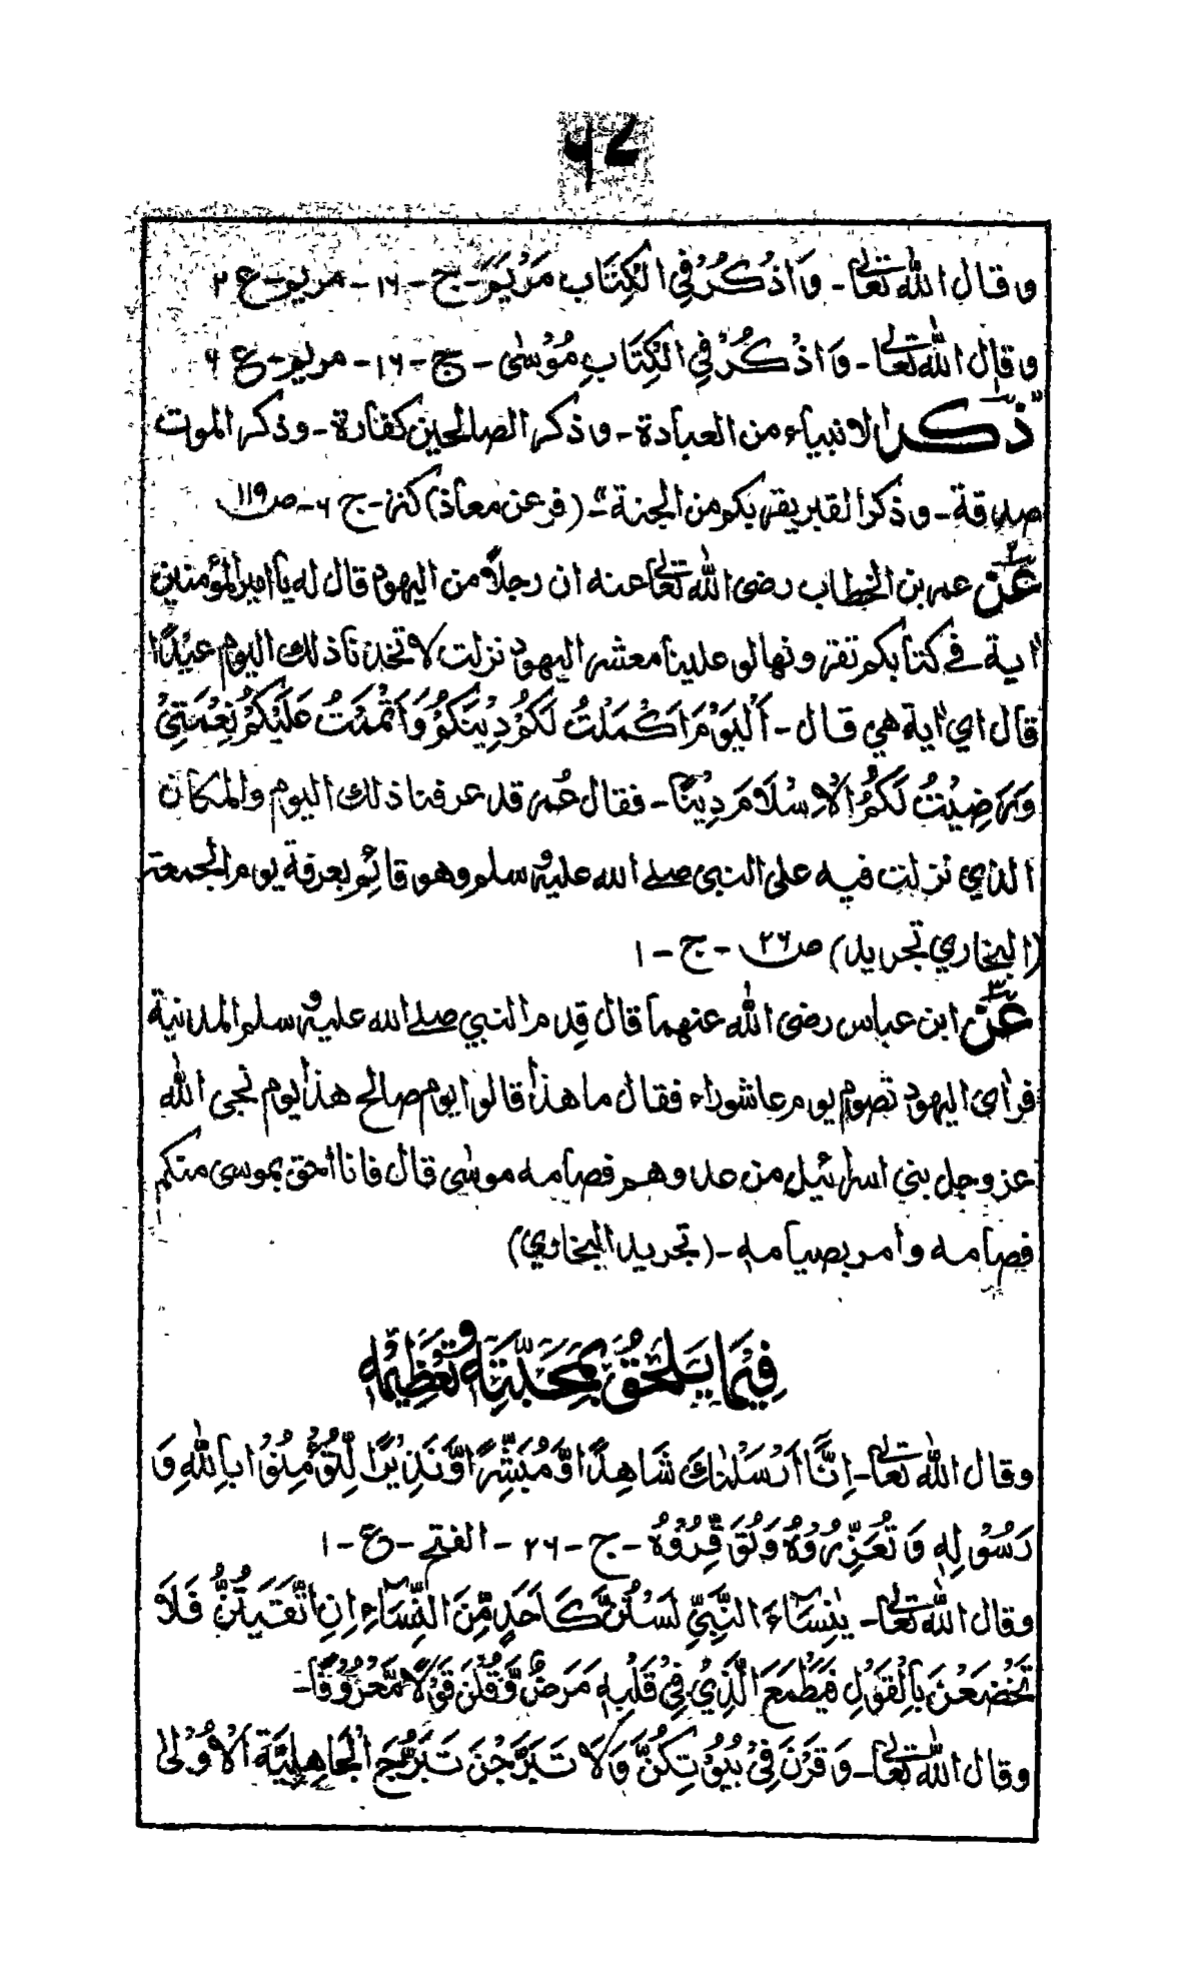 وقال الله تعالى - وَاذْكُرْ فِي الْكِتَابِ مَرْيَمَ - ج - ١٦ - مريم - ع ٢
وقال الله تعالى - وَاذْكُرْ فِي الْكِتَابِ مُوْسٰى - ج - ١٦ - مريم - ع ٤
ذكر الانبياء من العبادة - وذكر الصالحين كفارة - وذكر الموت
صدقة - وذكر القبر يقربكم من الجنة - (فر عن معاذ) كنز - ج ٦ - ص ١١٩
عَنْ عمر بن الخطاب رضى الله تعالى عنه ان رجلاً من اليهود قال له يا امير المؤمنين
اٰية في كتابكم تقرءونها لو علينا معشر اليهود نزلت لاتخذنا ذلك اليوم عيْدًا
قال اي اٰية هي قال - اَلْيَوْمَ اَكْمَلْتُ لَكُمْ دِيْنَكُمْ وَاَتْمَمْتُ عَلَيْكُمْ نِعْمَتِيْ
وَرَضِيْتُ لَكُمُ الْاِسْلَامَ دِيْنًا - فقال عُمر قد عرفنا ذلك اليوم والمكان
الذي نزلت فيه على النبى صلے الله عليه وسلم وهو قائم بعرفة يوم الجمعة
(البخاري تجريد) ص ٢٦ - ج - ١
عَنْ ابن عباس رضى الله عنهما قال قدِم النبي صلے الله عليه وسلم المدنية
فرأى اليهود تصوم يوم عاشوراء فقال ما هذا قالوا يوم صالح هذا يوم نجى الله
عز وجل بني اسرائيل من عدوهم فصامه موسٰى قال فانا احق بموسى منكم
فصامه وامر بصيامه - (تجريد البخاري)
فِيْمَا يَلْحَقُ بِمَحَبَّتِهٖ وَتَعْظِيْمِهٖ
وقال الله تعالى - اِنَّا اَرْسَلْنٰكَ شَاهِدًا وَّمُبَشِّرًا وَّنَذِيْرًا لِّتُؤْمِنُوْا بِاللّٰهِ وَ
رَسُوْلِهٖ وَتُعَزِّرُوْهُ وَتُوَقِّرُوْهُ - ج - ٢٦ - الفتح - ع - ١
وقال الله تعالى - يٰنِسَآءَ النَّبِيِّ لَسْتُنَّ كَاَحَدٍ مِّنَ النِّسَآءِ اِنِ اتَّقَيْتُنَّ فَلَا
تَخْضَعْنَ بِالْقَوْلِ فَيَطْمَعَ الَّذِيْ فِيْ قَلْبِهٖ مَرَضٌ وَّقُلْنَ قَوْلًا مَّعْرُوْفًا -
وقال الله تعالى - وَقَرْنَ فِيْ بُيُوْتِكُنَّ وَلَا تَبَرَّجْنَ تَبَرُّجَ الْجَاهِلِيَّةِ الْاُوْلٰى